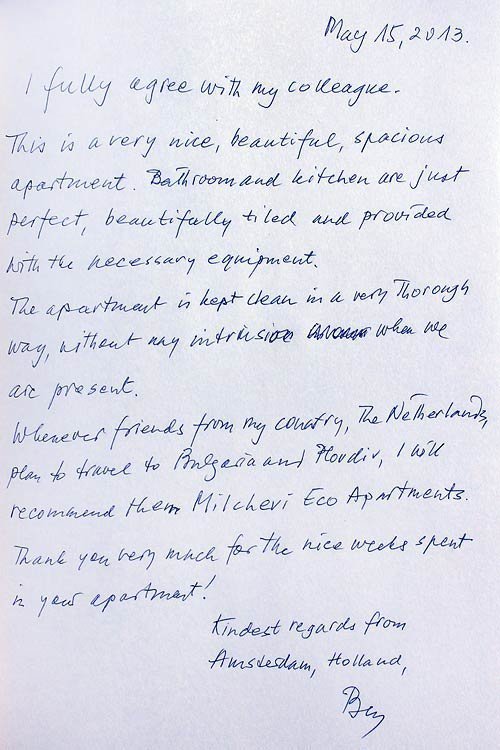 May 15, 2013.
I fully agree with my colleague.
This is a very nice, beautiful, spacious
apartment. Bathroom and kitchen are just
perfect, beautifully tiled and provided
with the necessary equipment.
The apartment is kept clean in a very Thorough
way, without any intrusion when we
are present.
Whenever friends from my country, The Netherlands,
plan to travel to Bulgaria and Plovdiv, I will
recommend them Milchevi Eco Apartments.
Thank you very much for the nice weeks spent
in your apartment!
Kindest regards from
Amsterdam, Holland,